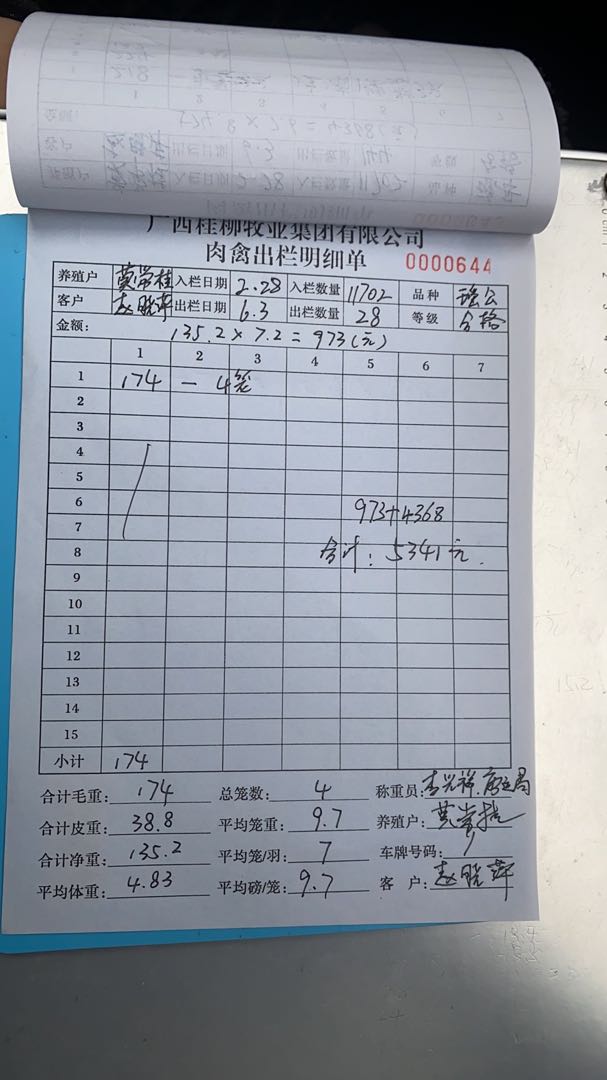 广西桂柳牧业集团有限公司
肉禽出栏明细单 0000644
养殖户 莫常桂 入栏日期 2.28 入栏数量 11702 品种 瑶公
客户 赵晓萍 出栏日期 6.3 出栏数量 28 等级 合格
金额: 135.2×7.2=973(元)
1 2 3 4 5 6 7
1 174 — 4笼
2
3
4
5
6 973+4368
7
8 合计: 5341元.
9
10
11
12
13
14
15
小计 174
合计毛重: 174 总笼数: 4 称重员:
合计皮重: 38.8 平均笼重: 9.7 养殖户: 莫常桂
合计净重: 135.2 平均笼/羽: 7 车牌号码:
平均体重: 4.83 平均磅/笼: 9.7 客 户: 赵晓萍